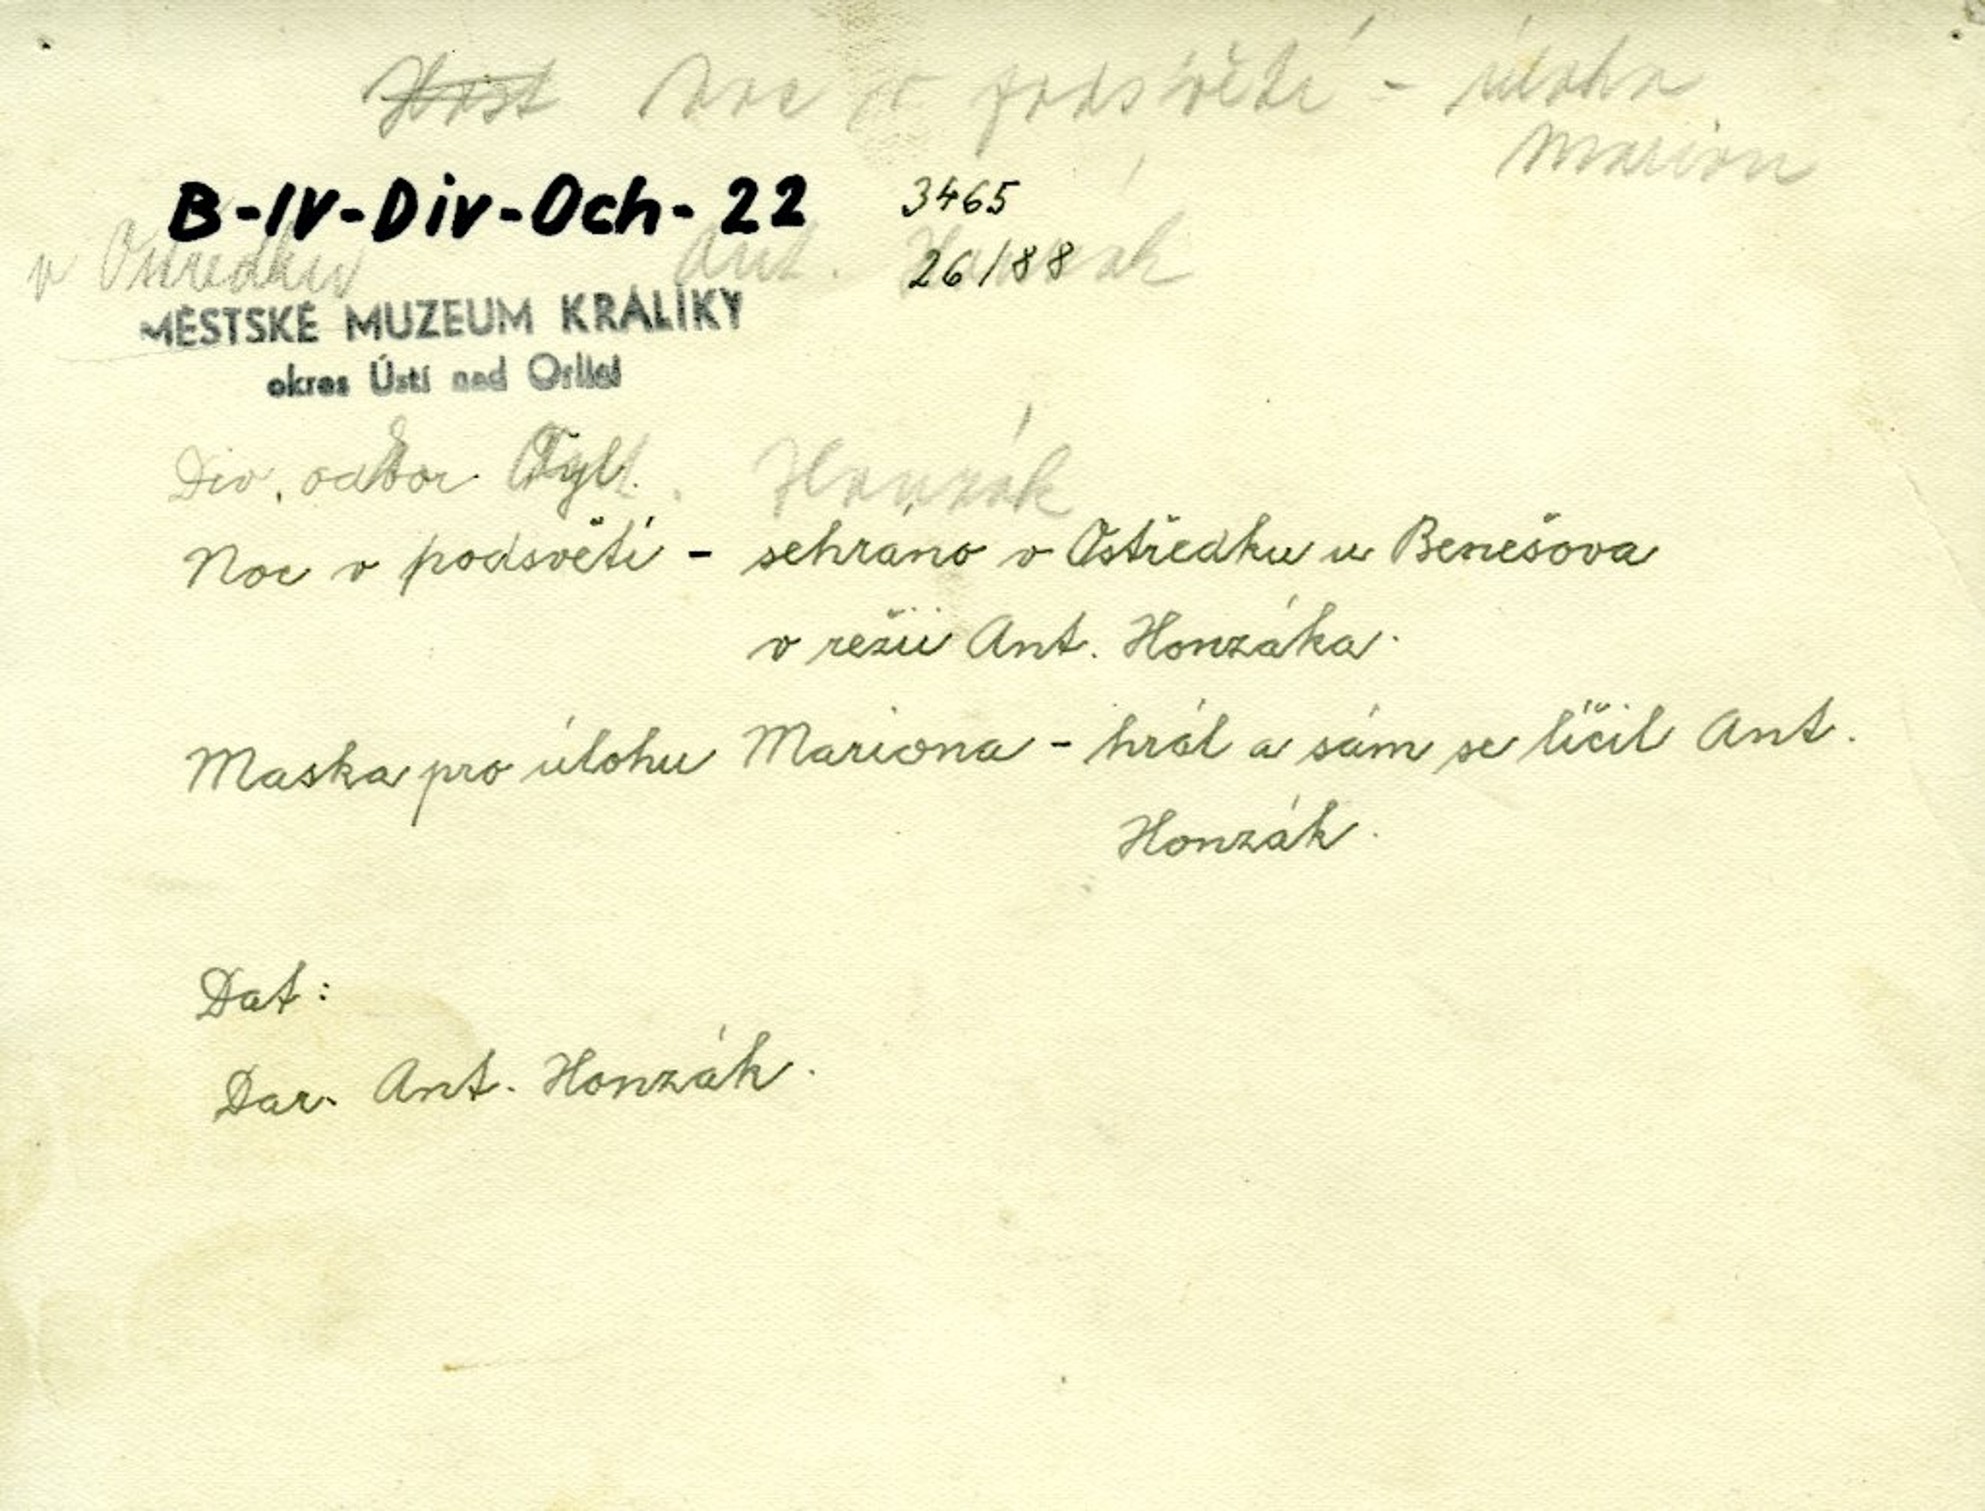 Noc v podsvětí - úloha
Marion
B-IV-Div-Och-22 3465
v Ostředku Ant. Honzák 26/88
MĚSTSKÉ MUZEUM KRÁLÍKY
okres Ústí nad Orlicí
Div. odbor Tyl. Honzák
Noc v podsvětí - sehráno v Ostředku u Benešova
v režii Ant. Honzáka.
Maska pro úlohu Mariona - hrál a sám se líčil Ant.
Honzák.
Dat:
Dar. Ant. Honzák.